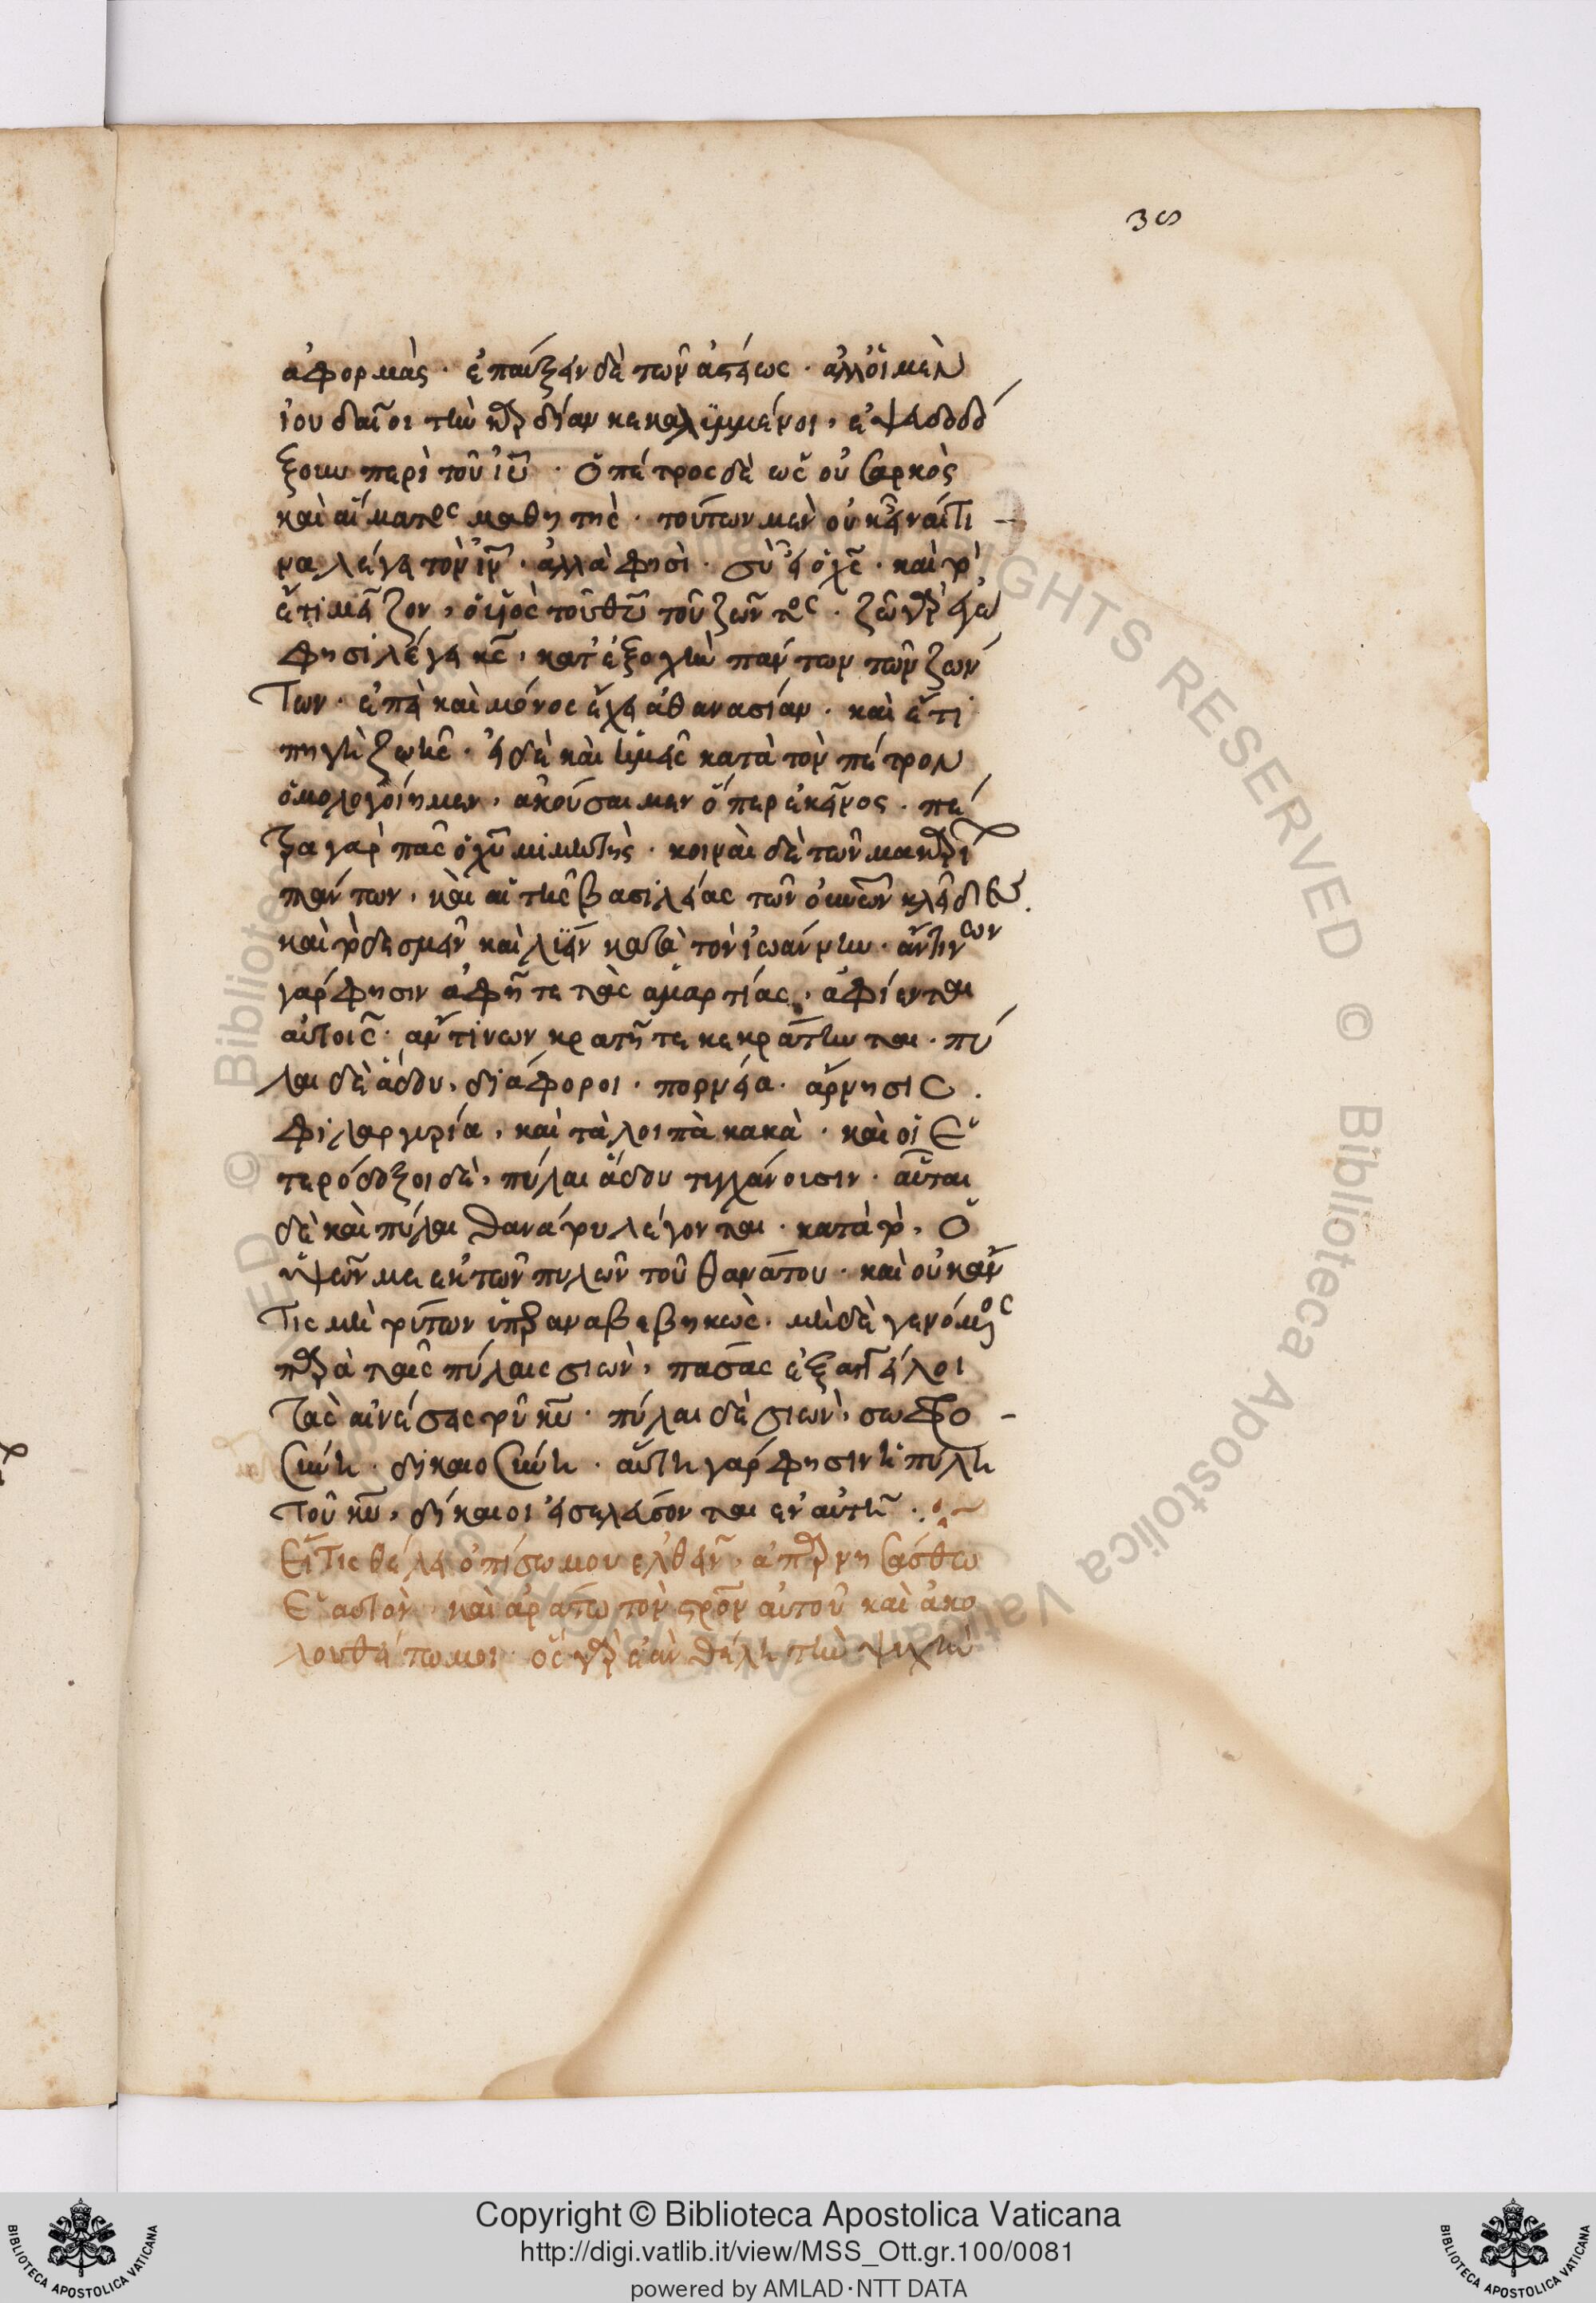 38
ἀφορμὰς · ἐπαύξειν δὲ τῶν ἀπίστως · ἀλλ' οἱ μὲν
ἰουδαῖοι τὴν καρδίαν κεκαλυμμένοι, ἐψευδοδό
ξουν περὶ τοῦ ἰυ̅ · ὁ πέτρος δὲ ὡς οὐ σαρκὸς
καὶ αἵματος μαθητὴς · τούτων μὲν οὐκ
να λέγει τὸν ἰν̅ · ἀλλὰ φησὶ · σὺ εἶ ὁ χς̅ · καὶ τὸ
ἔτι μεῖζον, ὁ υἱὸς τοῦ θυ̅ τοῦ ζῶντος · ζῶ γὰρ ἐγὼ
φησὶ λέγει κς̅, κατ' ἐξοχὴν πάντων τῶν ζών
των · ἐπεὶ καὶ μόνος ἔχει ἀθανασίαν · καὶ ἔτι
πηγὴ ζωῆς · εἰ δὲ καὶ ἡμεῖς κατὰ τὸν πέτρον
ὁμολογοίημεν, ἀκούσαιμεν ὅπερ ἐκεῖνος · πέ
τρα γὰρ πᾶς ὁ χυ̅ μιμητής · κοιναὶ δὲ τῶν μακαρι
πάντων, καὶ αἱ τῆς βασιλείας τῶν οὐνῶν κλεῖδες.
καὶ τὸ δεσμεῖν καὶ λύειν κατὰ τὸν ἰωάννην · ἄντινων
γάρ φησιν ἀφῆτε τὰς ἁμαρτίας, ἀφίενται
αὐτοῖς · ἄν τινων κρατῆτε κεκράτηνται · πύ
λαι δὲ ἅδου, διάφοροι · πορνεία · ἄρνησις.
φιλαργυρία, καὶ τὰ λοιπὰ κακὰ · καὶ οἱ ἑ
τερόδοξοι δὲ, πύλαι ἅδου τυγχάνουσιν · αὗται
δὲ καὶ πύλαι θανάτου λέγονται · κατὰ τὸ, ὁ
ὑψῶν με ἐκ τῶν πυλῶν τοῦ θανάτου · καὶ οὐκ ἄν
τις μὴ τούτων ὑπεραναβεβηκὼς · μὴ δὲ γενόμενος
παρὰ ταῖς πύλαις σιὼν, πάσας ἐξαγγείλοι
τὰς αἰνέσεις τοῦ κυ̅ · πύλαι δὲ σιὼν, σωφρο -
σύνη · δικαιοσύνη · αὕτη γάρ φησιν ἡ πύλη
τοῦ κυ̅, δίκαιοι εἰσελεύσονται ἐν αὐτῇ · :~
Εἴ τις θέλει ὀπίσω μου ἐλθεῖν, ἀπαρνησάσθω
ἑαυτὸν, καὶ ἀράτω τὸν σταυρὸν αὐτοῦ καὶ ἀκο
λουθείτω μοι · ὃς γὰρ ἐὰν θέλῃ τὴν ψυχὴν
Copyright © Biblioteca Apostolica Vaticana
http://digi.vatlib.it/view/MSS_Ott.gr.100/0081
powered by AMLAD·NTT DATA
BIBLIOTECA APOSTOLICA VATICANA
BIBLIOTECA APOSTOLICA VATICANA